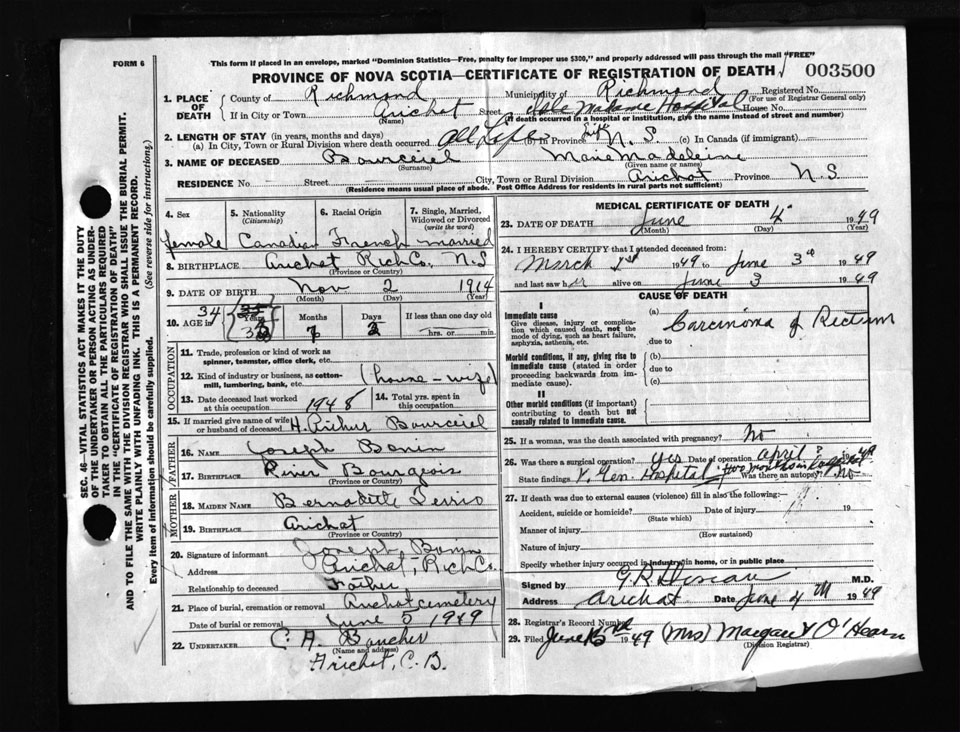 FORM 6
This form if placed in an envelope, marked "Dominion Statistics—Free, penalty for improper use $300," and properly addressed will pass through the mail "FREE"
PROVINCE OF NOVA SCOTIA—CERTIFICATE OF REGISTRATION OF DEATH 003500
1. PLACE OF DEATH County of Richmond Municipality of Richmond Registered No.
(For use of Registrar General only)
If in City or Town Arichat (Name) Street Isle Madame Hospital House No.
(If death occurred in a hospital or institution, give the name instead of street and number)
2. LENGTH OF STAY (in years, months and days)
(a) In City, Town or Rural Division where death occurred All Life (b) In Province Life N. S. (c) In Canada (if immigrant)
3. NAME OF DECEASED Bourceiel Marie Madeleine
(Surname) (Given name or names)
RESIDENCE No. Street City, Town or Rural Division Arichat Province N. S.
(Residence means usual place of abode. Post Office Address for residents in rural parts not sufficient)
4. Sex 5. Nationality (Citizenship) 6. Racial Origin 7. Single, Married, Widowed or Divorced (write the word)
female Canadian French married
8. BIRTHPLACE Arichat Rich Co. N. S
(Province or Country)
9. DATE OF BIRTH Nov 2 1914
(Month) (Day) (Year)
10. AGE in 34 Years Months 7 Days 2 If less than one day old
hrs. or min.
OCCUPATION
11. Trade, profession or kind of work as spinner, teamster, office clerk, etc.
12. Kind of industry or business, as cotton-mill, lumbering, bank, etc. (house-wife)
13. Date deceased last worked at this occupation 1948 14. Total yrs. spent in this occupation
15. If married give name of wife or husband of deceased H. Arthur Bourceiel
FATHER
16. NAME Joseph Bonin
17. BIRTHPLACE River Bourgeois
(Province or Country)
MOTHER
18. MAIDEN NAME Bernadette Terrio
19. BIRTHPLACE Arichat
(Province or Country)
20. Signature of informant Joseph Bonin
Address Arichat, Rich Co.
Relationship to deceased Father
21. Place of burial, cremation or removal Arichat cemetery
Date of burial or removal June 5 1949
22. UNDERTAKER C. A. Boucher
(Name and address)
Arichat, C. B.
MEDICAL CERTIFICATE OF DEATH
23. DATE OF DEATH June 4 1949
(Month) (Day) (Year)
24. I HEREBY CERTIFY that I attended deceased from:
March 1st 1949 to June 3rd 1949
and last saw her alive on June 3 1949
CAUSE OF DEATH
I
Immediate cause
Give disease, injury or complication which caused death, not the mode of dying, such as heart failure, asphyxia, asthenia, etc.
(a) Carcinoma of Rectum
due to
Morbid conditions, if any, giving rise to immediate cause (stated in order proceeding backwards from immediate cause).
(b)
due to
(c)
II
Other morbid conditions (if important) contributing to death but not causally related to immediate cause.
25. If a woman, was the death associated with pregnancy? No
26. Was there a surgical operation? yes Date of operation April? 1949
State findings V. Gen. Hospital two months in hospital Was there an autopsy? No
27. If death was due to external causes (violence) fill in also the following:
Accident, suicide or homicide? Date of injury 19
(State which)
Manner of injury
(How sustained)
Nature of injury
Specify whether injury occurred in industry, in home, or in public place
Signed by G. R. M.D.
Address Arichat Date June 4th 1949
28. Registrar's Record Number
29. Filed June 1949 (Mrs) Margaret O'Hearn
(Division Registrar)
SEC. 46—VITAL STATISTICS ACT MAKES IT THE DUTY
OF THE UNDERTAKER OR PERSON ACTING AS UNDER-
TAKER TO OBTAIN ALL THE PARTICULARS REQUIRED
IN THE "CERTIFICATE OF REGISTRATION OF DEATH"
AND TO FILE THE SAME WITH THE DIVISION REGISTRAR WHO SHALL ISSUE THE BURIAL PERMIT.
WRITE PLAINLY WITH UNFADING INK. THIS IS A PERMANENT RECORD.
Every item of information should be carefully supplied. (See reverse side for instructions.)